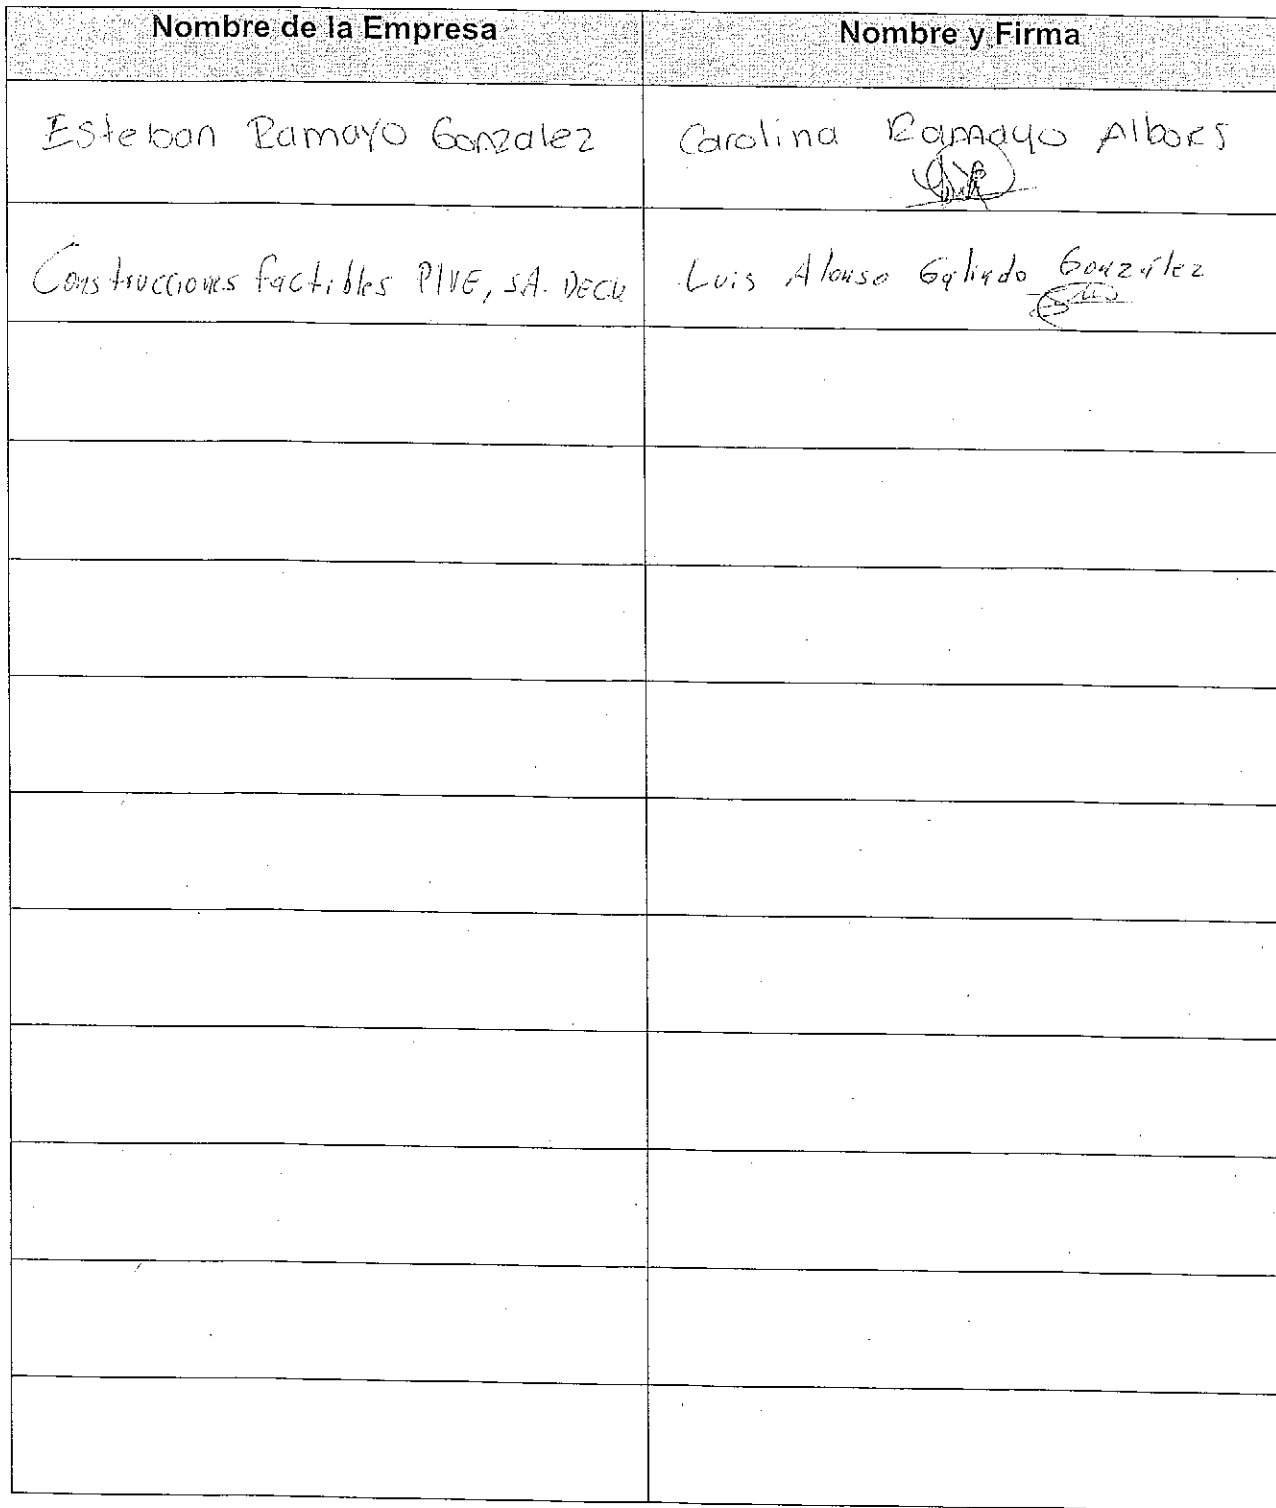 Nombre de la Empresa
Nombre y Firma
Esteban Ramayo Gonzalez
Carolina Ramayo Albores
Construcciones factibles PIVE, SA. DECV
Luis Alonso Galindo González